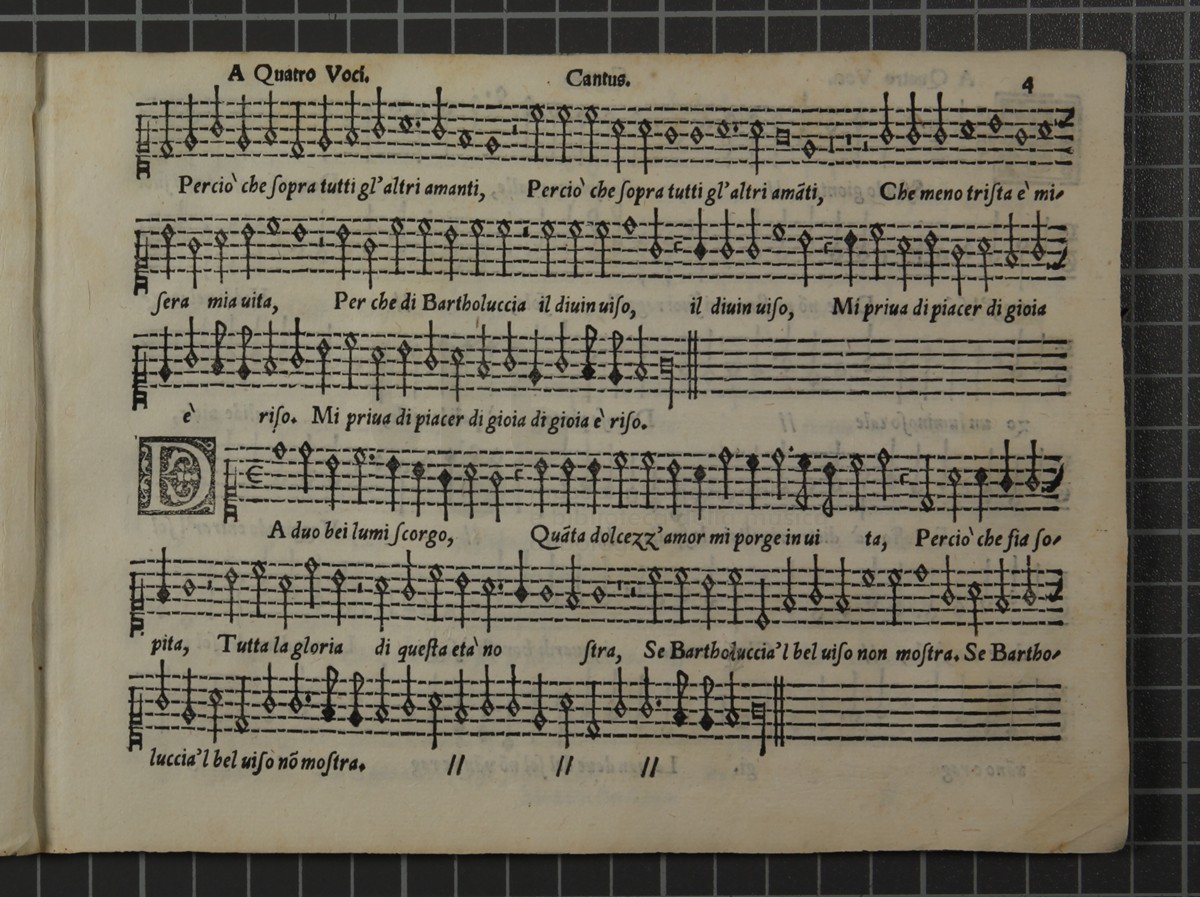 A Quatro Voci. Cantus. 4
Percio` che ſopra tutti gl'altri amanti, Percio` che ſopra tutti gl'altri amāti, Che meno triſta e` mi-
ſera mia uita, Per che di Bartholuccia il diuin uiſo, il diuin uiſo, Mi priua di piacer di gioia
e` riſo. Mi priua di piacer di gioia di gioia e` riſo.
D A duo bei lumi ſcorgo, Quāta dolcezz'amor mi porge in ui ta, Percio` che ſia ſo-
pita, Tutta la gloria di queſta eta` no ſtra, Se Bartholuccia'l bel uiſo non moſtra. Se Bartho-
luccia'l bel uiſo nō moſtra. // // //